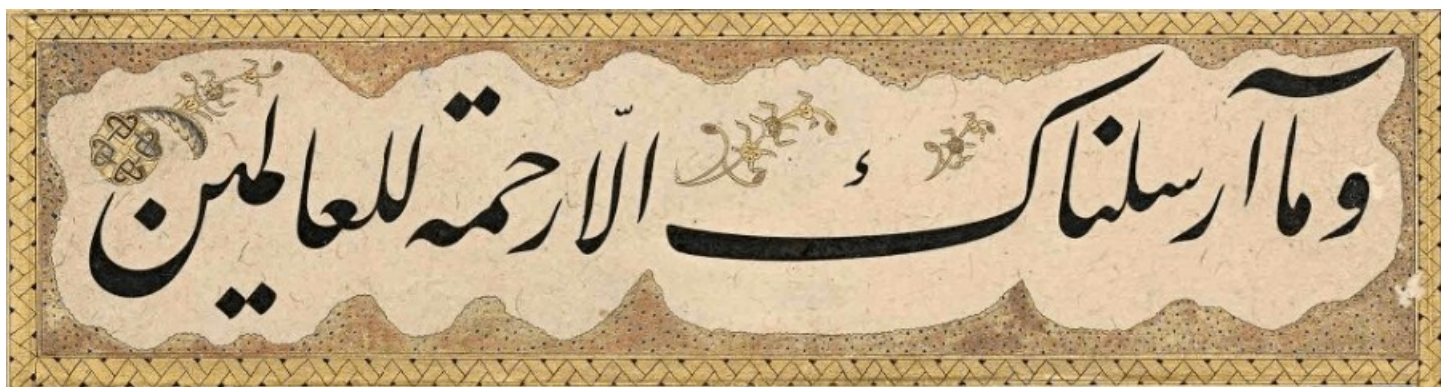 وما آرسلناك الّا رحمة للعالمين